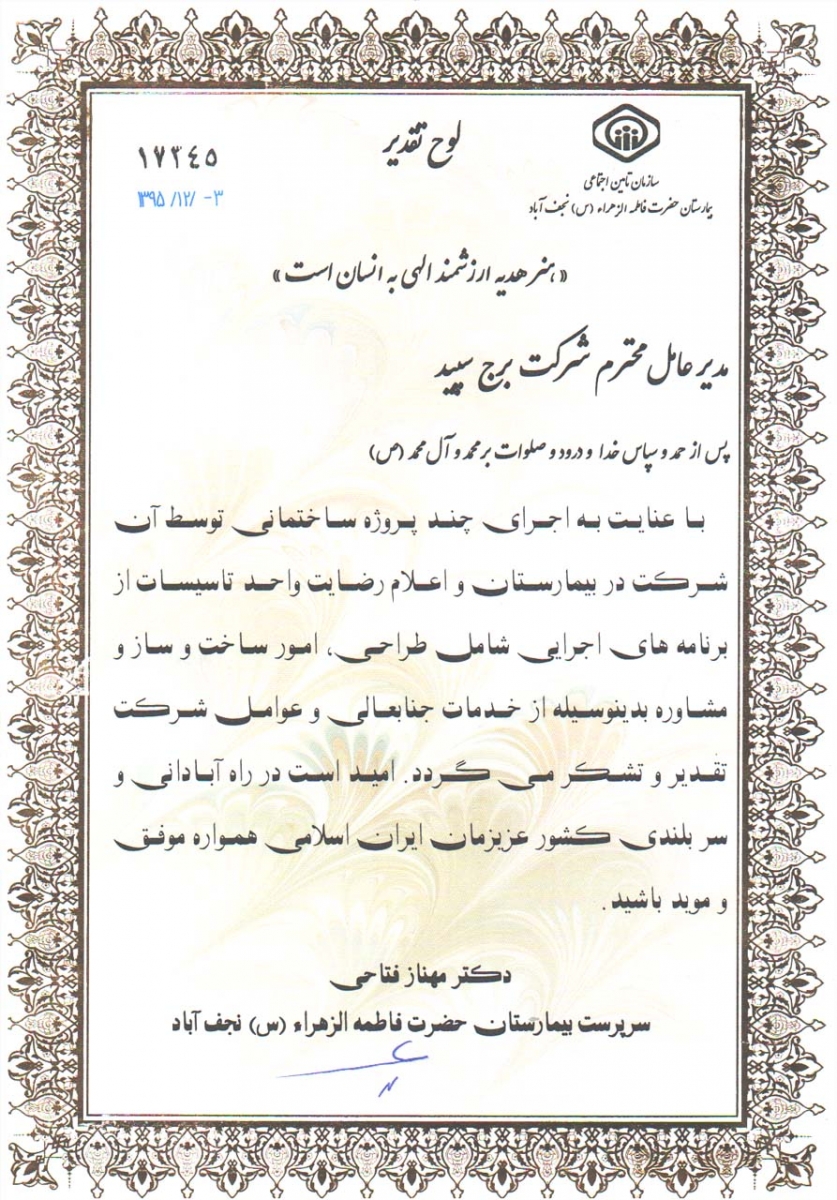 لوح تقدیر
سازمان تامین اجتماعی
بیمارستان حضرت فاطمه الزهراء (س) نجف آباد
۱۷۳۴۵
۱۳۹۵/۱۲/۰۳
«هنر هدیه ارزشمند الهی به انسان است»
مدیر عامل محترم شرکت برج سپید
پس از حمد و سپاس خدا و درود و صلوات بر محمد و آل محمد (ص)
با عنایت به اجرای چند پروژه ساختمانی توسط آن
شرکت در بیمارستان و اعلام رضایت واحد تاسیسات از
برنامه های اجرایی شامل طراحی، امور ساخت و ساز و
مشاوره بدینوسیله از خدمات جنابعالی و عوامل شرکت
تقدیر و تشکر می گردد. امید است در راه آبادانی و
سر بلندی کشور عزیزمان ایران اسلامی همواره موفق
و موید باشید.
دکتر مهناز فتاحی
سرپرست بیمارستان حضرت فاطمه الزهراء (س) نجف آباد